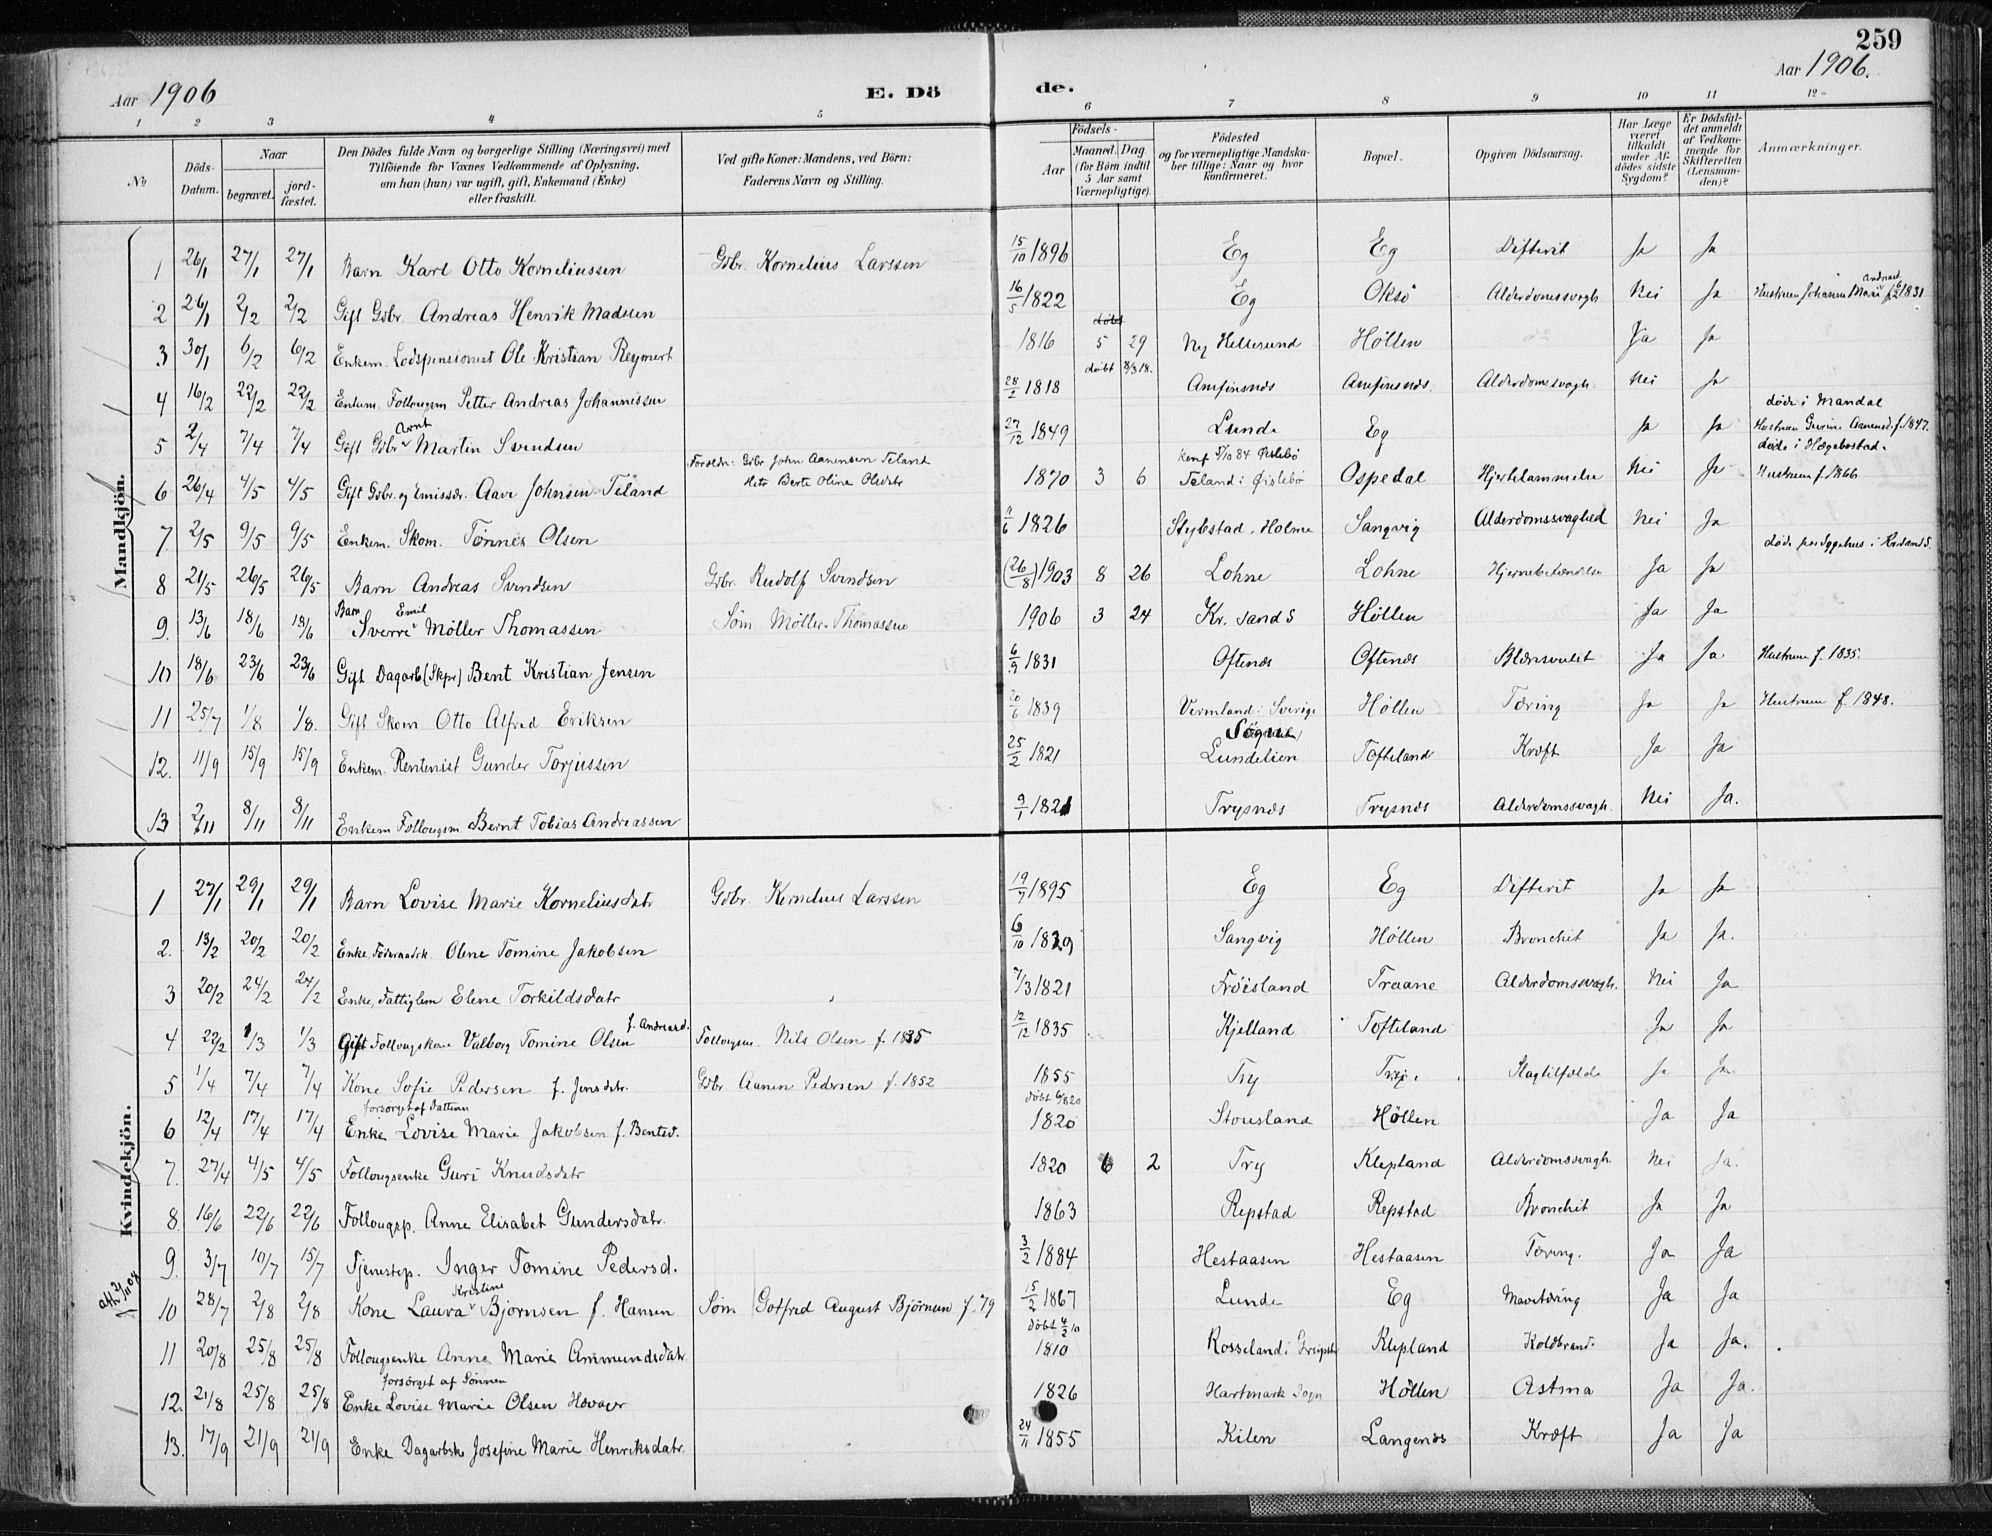 259
Aar 1906
E. Dö
de.
Aar 1906.
1 2 3 4 5 6 7 8 9 10 11 12
No
Döds-Datum.
Naar
begravet.
jord-fæstet.
Den Dödes fulde Navn og borgerlige Stilling (Næringsvei) med
Tilföiende for Voxnes Vedkommende af Oplysning,
om han (hun) var ugift, gift, Enkemand (Enke)
eller fraskilt.
Ved gifte Koner: Mandens, ved Börn:
Faderens Navn og Stilling.
Födsels-
Aar
Maaned. Dag
(for Börn indtil
5 Aar samt
Værnepligtige).
Födested
og for værnepligtige Mandska-
ber tillige: Naar og hvor
konfirmeret.
Bopæl.
Opgiven Dödsaarsag.
Har Læge
været
tilkaldt
under Af-
dödes sidste
Sygdom?
Er Dödsfal-
det anmeldt
af Vedkom-
mende for
Skifteretten
(Lensman-
den)?
Anmærkninger.
Mandkjön.
1 26/1 27/1 27/1 Barn Karl Otto Korneliussen Gbr. Kornelius Larssen 15/10 1896 Eg Eg Difterit Ja Ja
2 26/1 2/2 2/2 Gift Gbr. Andreas Henrik Madssen 16/5 1822 Eg Oksö Alderdomssvagh Nei Ja Hustruen Johanne Marie Andreasd. f. 6/2 1831
3 30/1 6/2 6/2 Enkem. Lodspensionist Ole Kristian Reymert 1816 döbt 5 29 Ny Hellesund Höllen do Ja Ja
4 16/2 22/2 22/2 Enkem. Follougsm Petter Andreas Johannissen 28/2 1818 döbt 8/3 18. Amfinsnæs Amfinsnæs. Alderdomssvagh. Nei Ja
5 2/4 7/4 7/4 Gift Gbr Arnt Martin Svendsen 27/12 1849 Lunde Eg Ja Ja döde i Mandal Hustruen Gurine Aanensd. f. 1847.
6 26/4 4/5 4/5 Gift Gbr. og Emissær. Aave Johnsen Teland Foreldr: Gbr John Aanensen Teland Htr Berte Oline Olsdtr 1870 3 6 konf 5/10 84 Öislebö Teland i Öislebö Ospedal Hjertelammelse Nei Ja döde i Hægebostad. Hustruen f. 1866
7. 2/5 9/5 9/5 Enkem. Skom. Tønnes Olsen 11/6 1826 Stybstad, Holme Sangvig Alderdomssvaghed Nei Ja
8 21/5 26/5 26/5 Barn Andreas Svendsen Gbr. Rudolf Svendsen (26/8) 1903 8 26 Lohne Lohne Hjernebetændelse Ja Ja döde paa Sygehus i Krsand S.
9. 13/6 18/6 18/6 Barn Sverre Emil Möller Thomassen Söm Möller Thomassen 1906 3 24 Kr. sand S Höllen Ja Ja
10 18/6 23/6 23/6 Gift Dagarb (Skpr) Bent Kristian Jensen 6/9 1831 Oftenæs Oftenæs Blæresvulst Ja Ja Hustruen f. 1835.
11 25/7 1/8 1/8. Gift Skom Otto Alfred Eriksen 20/6 1839 Vermland i Sverige Höllen Tæring Ja Ja Hustruen f. 1848.
12. 11/9 15/9 15/9 Enkem. Rentenist Gunder Torjussen 25/2 1821 Sögne Lundelien Tofteland Kræft Ja Ja
13 2/11 8/11 8/11 Enkem Follougsm. Bernt Tobias Andreassen 9/1 1821 Trysnæs Trysnæs Alderdomssvagh. Nei Ja.
Kvindekjön.
1 27/1 29/1 29/1 Barn Lovise Marie Korneliusdatr Gbr. Kornelius Larssen 19/7 1895 Eg Eg Difterit Ja Ja
2. 13/2 20/2 20/2 Enke Olene Tomine Jakobsen 6/10 1829 Sangvig Höllen Bronchit Ja Ja.
3 20/2 24/2 24/2 Enke, Fattiglem Elene Torkildsdatr 7/3 1821 Fröisland Traane Alderdomssvagh. Nei Ja
4 22/2 1/3 1/3 Gift Follougskone Valborg Tomine Olsen f. Andreasd. Follougsm. Nils Olsen f. 1835 12/12 1835 Kjelland Tofteland Ja Ja
5 1/4 7/4 7/4 Kone Sofie Pedersen f. Jensdtr. Gbr Aanen Pedersen f. 1852 1855 Try Try. Slagtilfælde Ja Ja
6 12/4 17/4 17/4 forsörget af Datteren Enke Lovise Marie Jakobsen f. Bentsd. döbt 6/8 20 1820 Stousland Höllen Ja Ja
7. 27/4 4/5 4/5 Follougsenke Guri Knudsdatr 1820 6 2 Try Klepland Alderdomssvagh Nei Ja.
8. 16/6 22/6 22/6 Follougsp. Anne Elisabet Gundersdatr. 1863 Repstad Repstad Bronchit Ja Ja
9. 3/7 10/7 15/7 Tjenestep. Inger Tomine Pedersd. 3/2 1884 Hestaasen Hestaasen Tæring. Ja Ja
10 28/7 2/8 2/8 Kone Laura Kristine Bjørnsen f. Hansen Söm Gotfred August Björnsen f. 79 15/2 1867 Lunde Eg Mavetæring Ja Ja
11 20/8 25/8 25/8 Follougsenke Anne Marie Ammundsdatr döbt 4/2 10 1810 Rosseland i Greipst Klepland Koldbrand. Ja Ja.
12. 21/8 25/8 25/8 forsörget af Sönnen Enke Lovise Marie Olsen Havaer 1826 Hartmark Sogn Höllen Astma Ja Ja.
13. 17/9 21/9 21/9 Enke Dagarbske Josefine Marie Henriksdatr. 24/11 1855 Kilen Langenæs Kræft Ja Ja